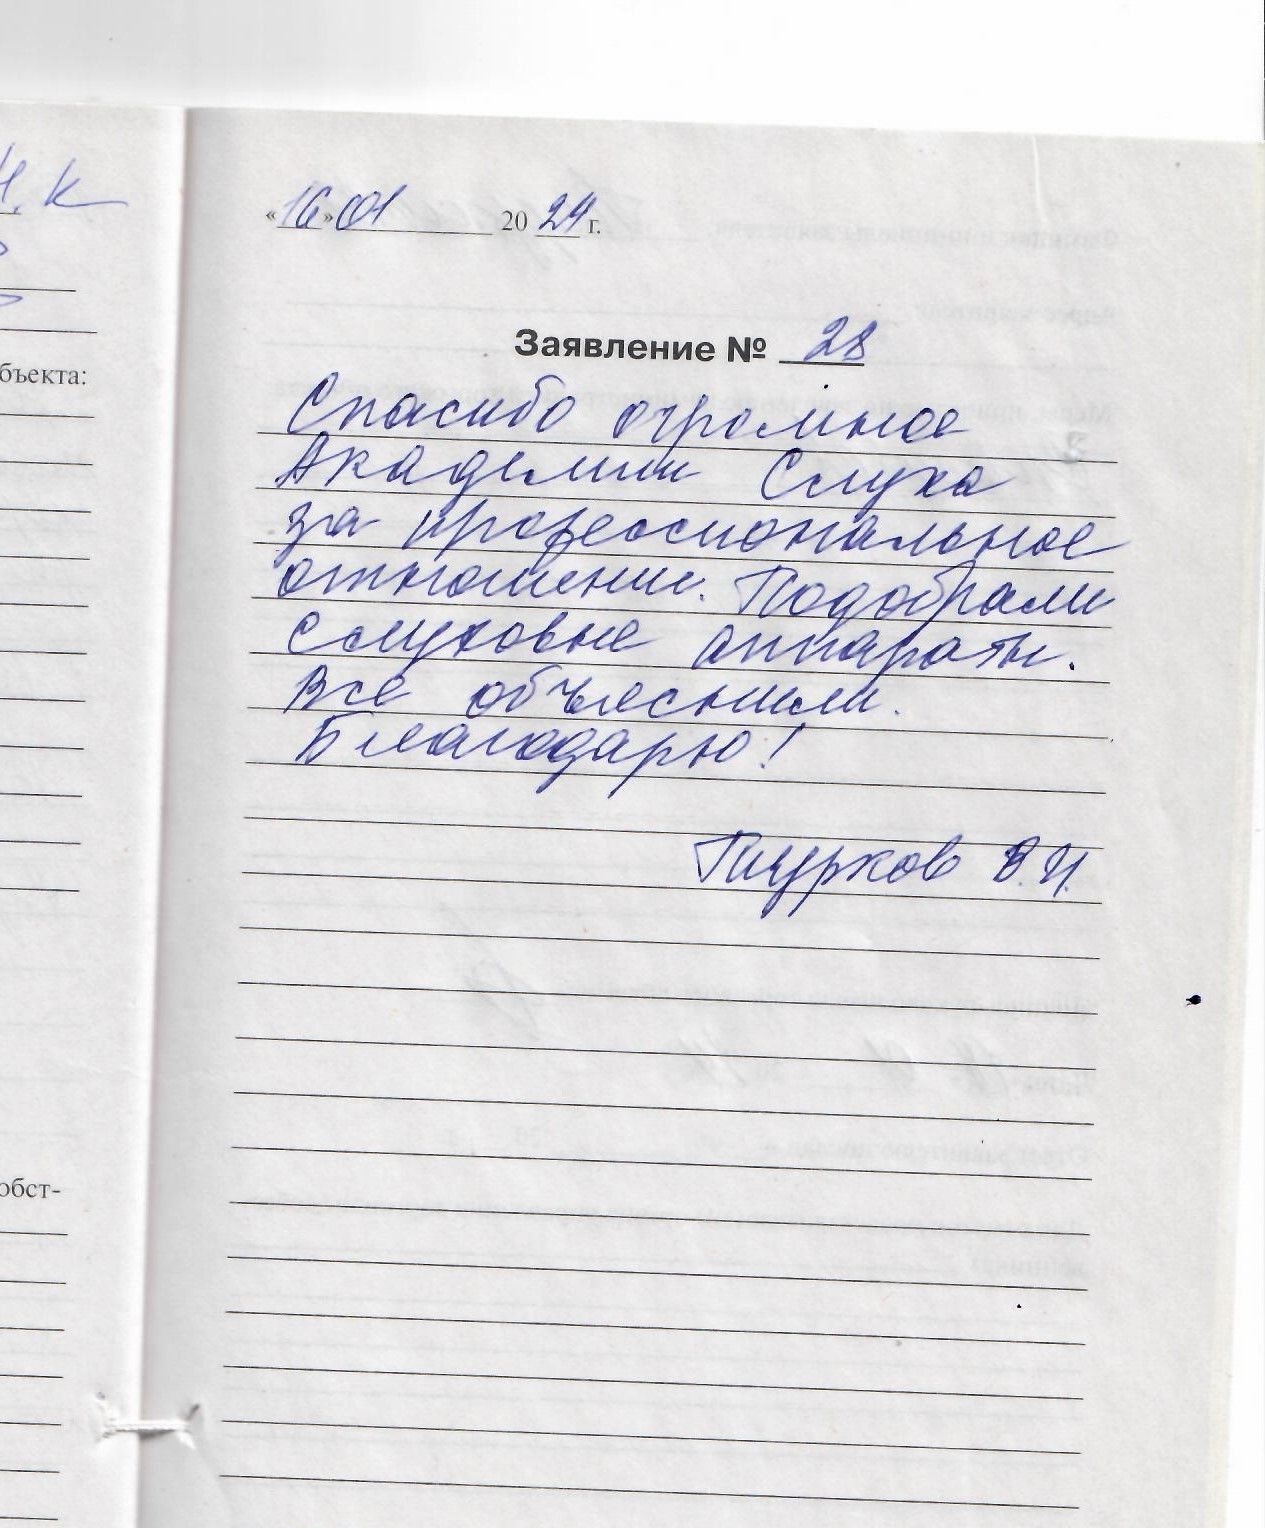 И. К
бъекта:
обст-
«16» 01 2024 г.
Заявление № 28
Спасибо огромное
Академии Слуха
за профессиональное
отношение. Подобрали
слуховые аппараты.
Все объяснили.
Благодарю!
В.И.